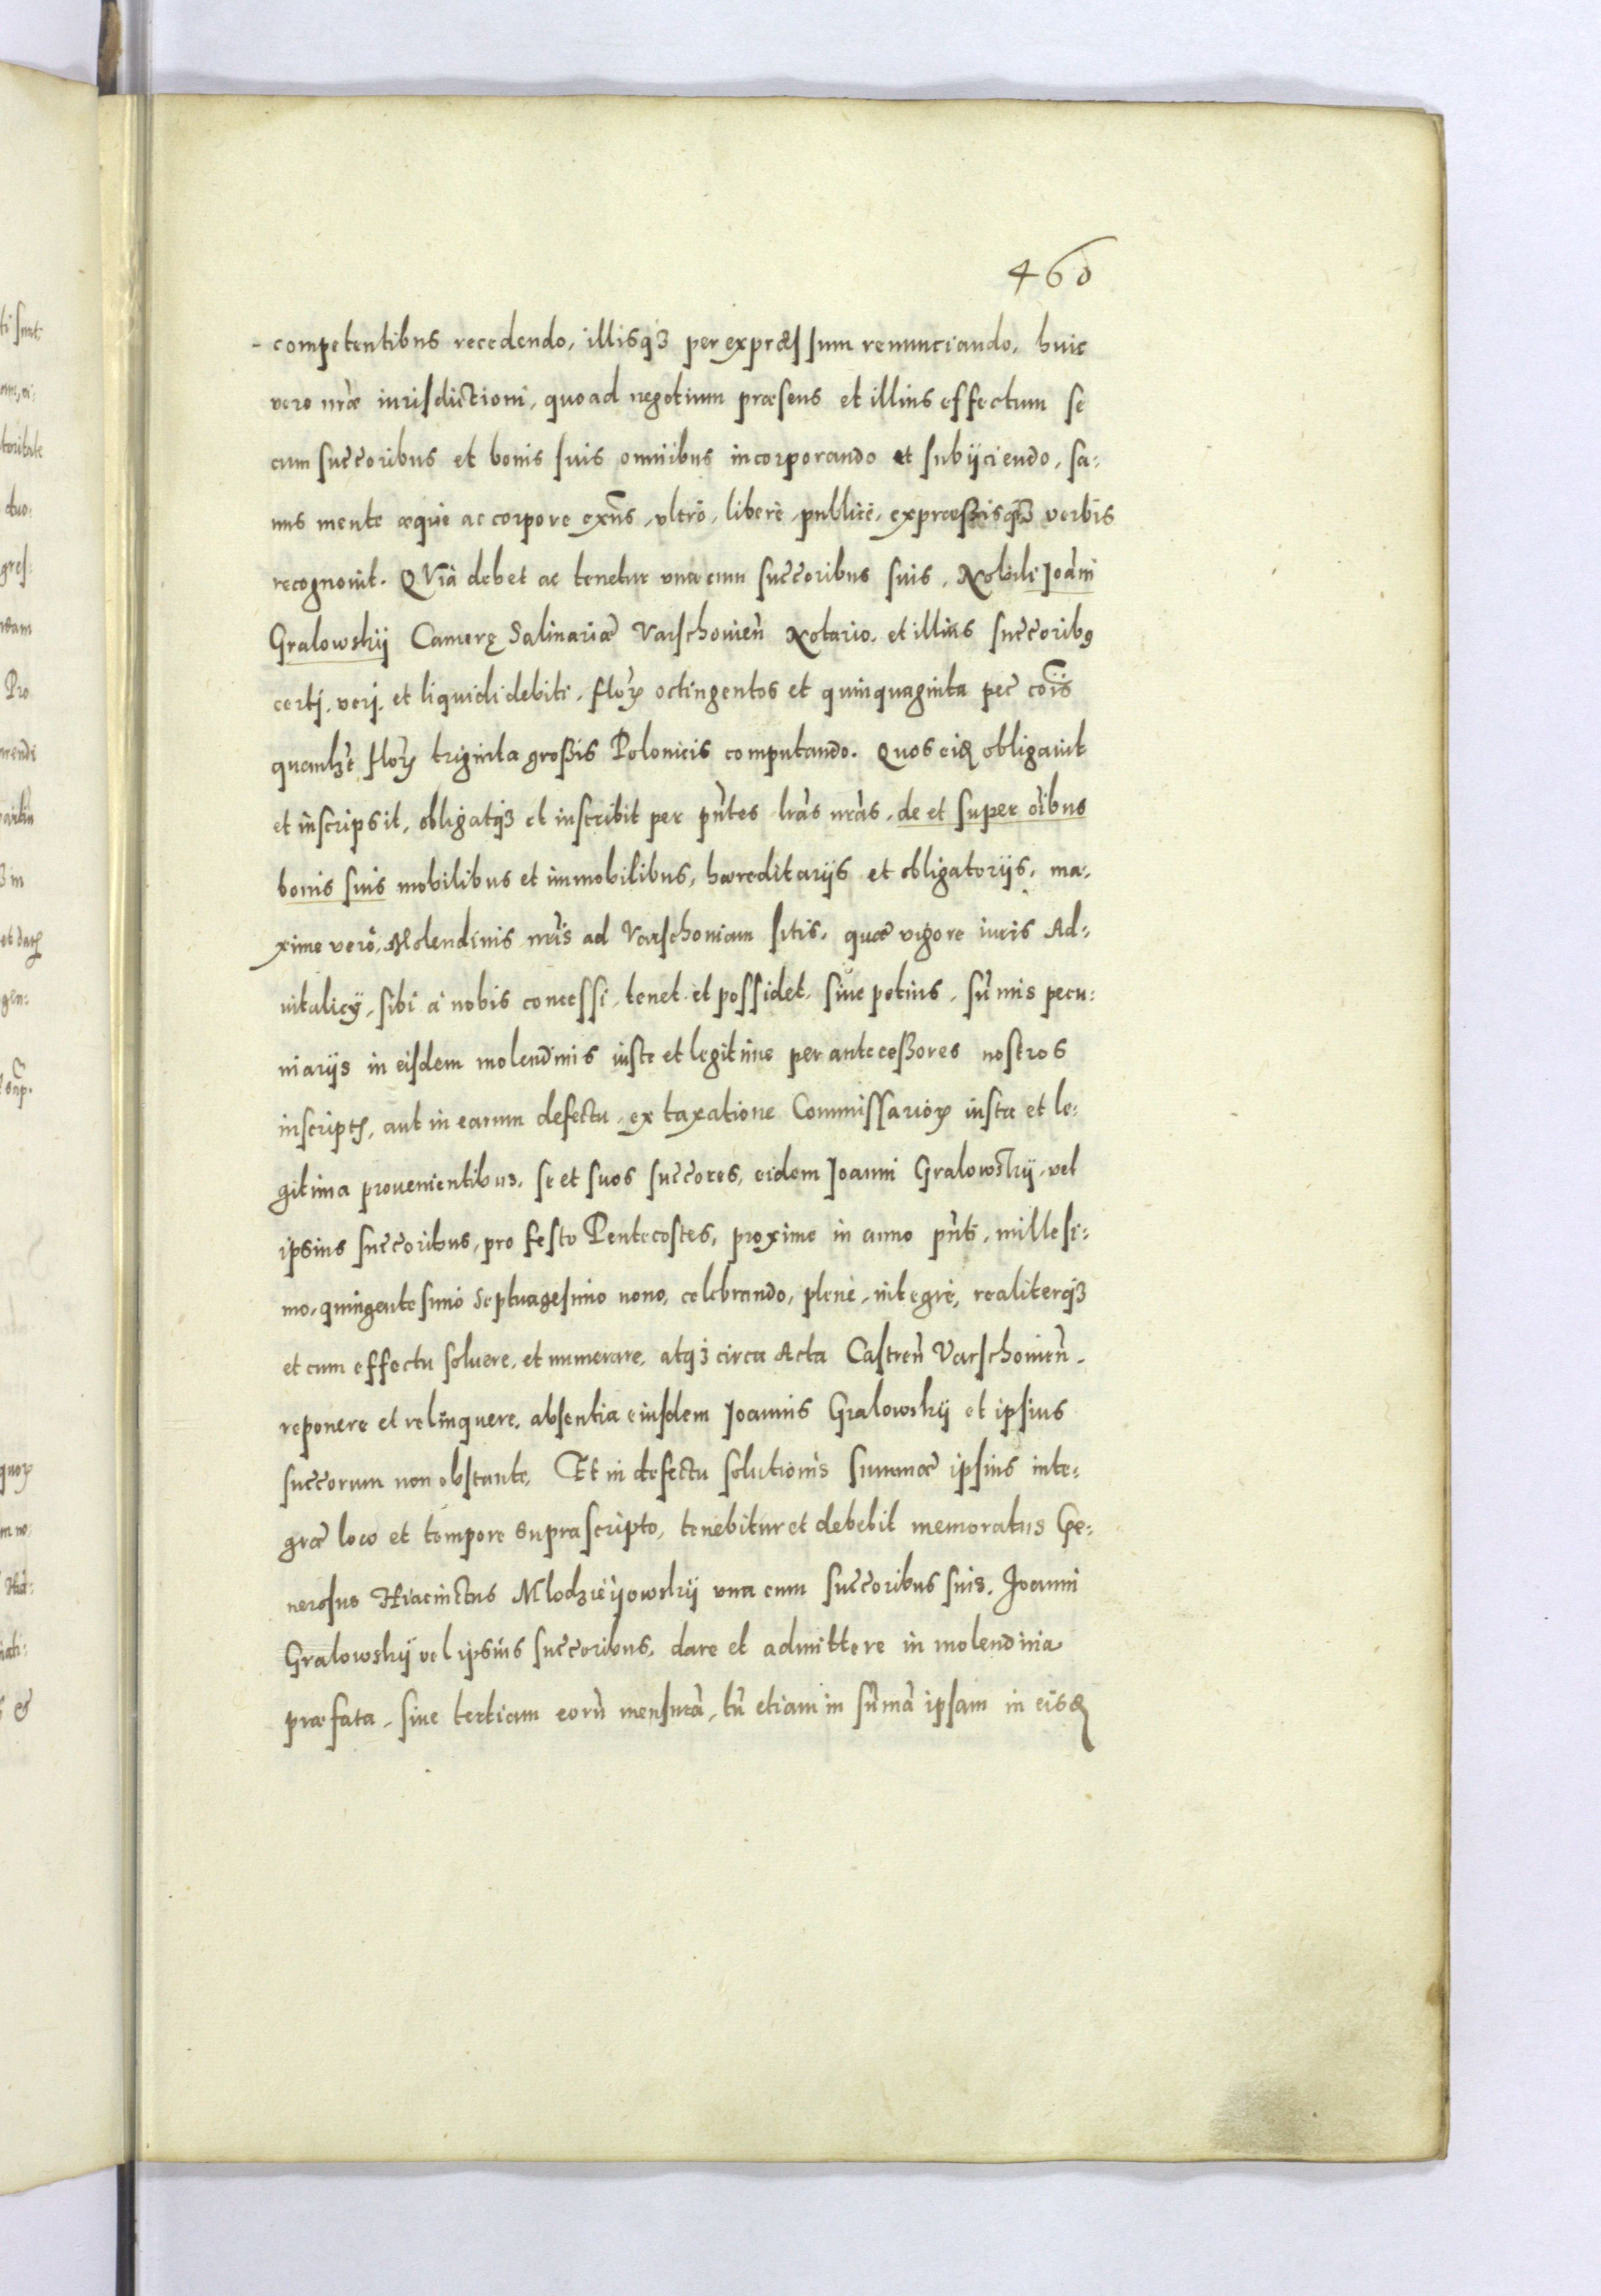 460
competentibus recedendo, illisqꝫ per expræssum renunciando, huic
vero nr̃æ iurisdictioni, quoad negotium præsens et illius effectum se
cum succ̃oribus et bonis suis omnibus incorporando et subijciendo, sa:
nus mente æque ac corpore exñs, vltrò, liberè, publicè, expræssisqꝫ verbis
recognouit. QVia debet ac tenetur vna cum succ̃oribus suis, Nobili Joãni
Gralowskij Camerę Salinariæ Varschouieñ Notario, et illius succ̃oribꝯ
certj, verj, et liquidi debiti, floꝝ octingentos et quinquaginta pec̃ cõis
quemlꝫt floꝝ triginta grossis Polonicis computando. Quos eiđ obligauit
et inscripsit, obligatqꝫ et inscribit per pñtes lrãs nrãs, de et super oĩbus
bonis suis mobilibus et immobilibus, hæreditarijs et obligatorijs, ma:
xime vero, Molendinis nr̃is ad Varschouiam sitis, quæ vigore iuris Ad:
uitalicÿ, sibi à nobis concessi, tenet et possidet, siue potius, sum̃is pecu:
niarijs in eisdem molendinis iuste et legitime per antecessores nostros
inscriptꝭ, aut in earum defectu, ex taxatione Commissarioꝝ iusta et le:
gitima prouenientibus, se et suos succ̃ores, eidem Joanni Gralowskij, vel
ipsius succ̃oribus, pro festo Pentecostes, proxime in anno pñti, millesi:
mo, quingentesimo septuagesimo nono, celebrando, plenè, integrè, realiterqꝫ
et cum effectu soluere, et numerare, atqꝫ circa Acta Castreñ Varschouieñ.
reponere et relinquere, absentia eiusdem Joannis Gralowskij et ipsius
succ̃orum non obstante. Et in defectu solutionis summæ ipsius inte:
græ loco et tempore suprascripto, tenebitur et debebit memoratus Ge:
nerosus Hiacinctus Mlodzieÿowskij vna cum succ̃oribus suis, Joanni
Gralowskij vel ipsius succ̃oribus, dare et admittere in molendina
præfata, siue tertiam eorũ mensurã, tũ etiam in sum̃ã ipsam in eisđ